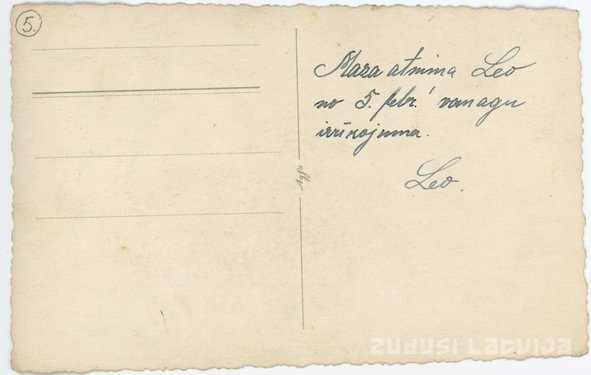 5.
Maza atmiņa Leo
no 5. febr. vanagu
izrīkojuma.
Leo.
Agfa
zudusi Latvija